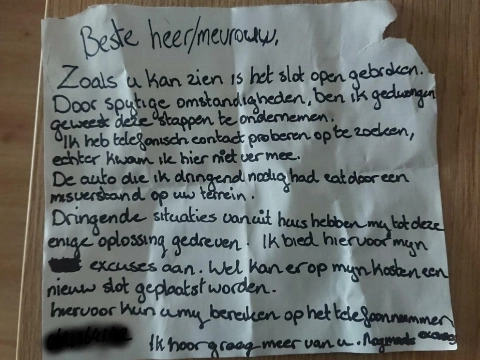 Beste heer/meurouw,
Zoals u kan zien is het slot open gebroken.
Door spytige omstandigheden, ben ik gedwongen
geweest deze stappen te ondernemen.
Ik heb telefonisch contact proberen op te zoeken,
echter kwam ik hier niet ver mee.
De auto die ik dringend nodig had eat door een
misverstand op uw terrein.
Dringende situaties vanuit huis hebben my tot deze
enige oplossing gedreven. Ik bied hiervoor myn
excuses aan. Wel kan er op myn kosten een
nieuw slot geplaatst worden.
hiervoor kun u my bereiken op het telefoonnummer
Ik hoor graag meer van u. Nogmaals excuses